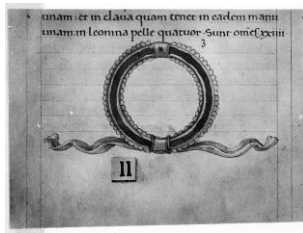 unam: et in claua quam tenet in eadem manu
unam: in leonina pelle quatuor. Sunt om̅es xxiiii
3
11